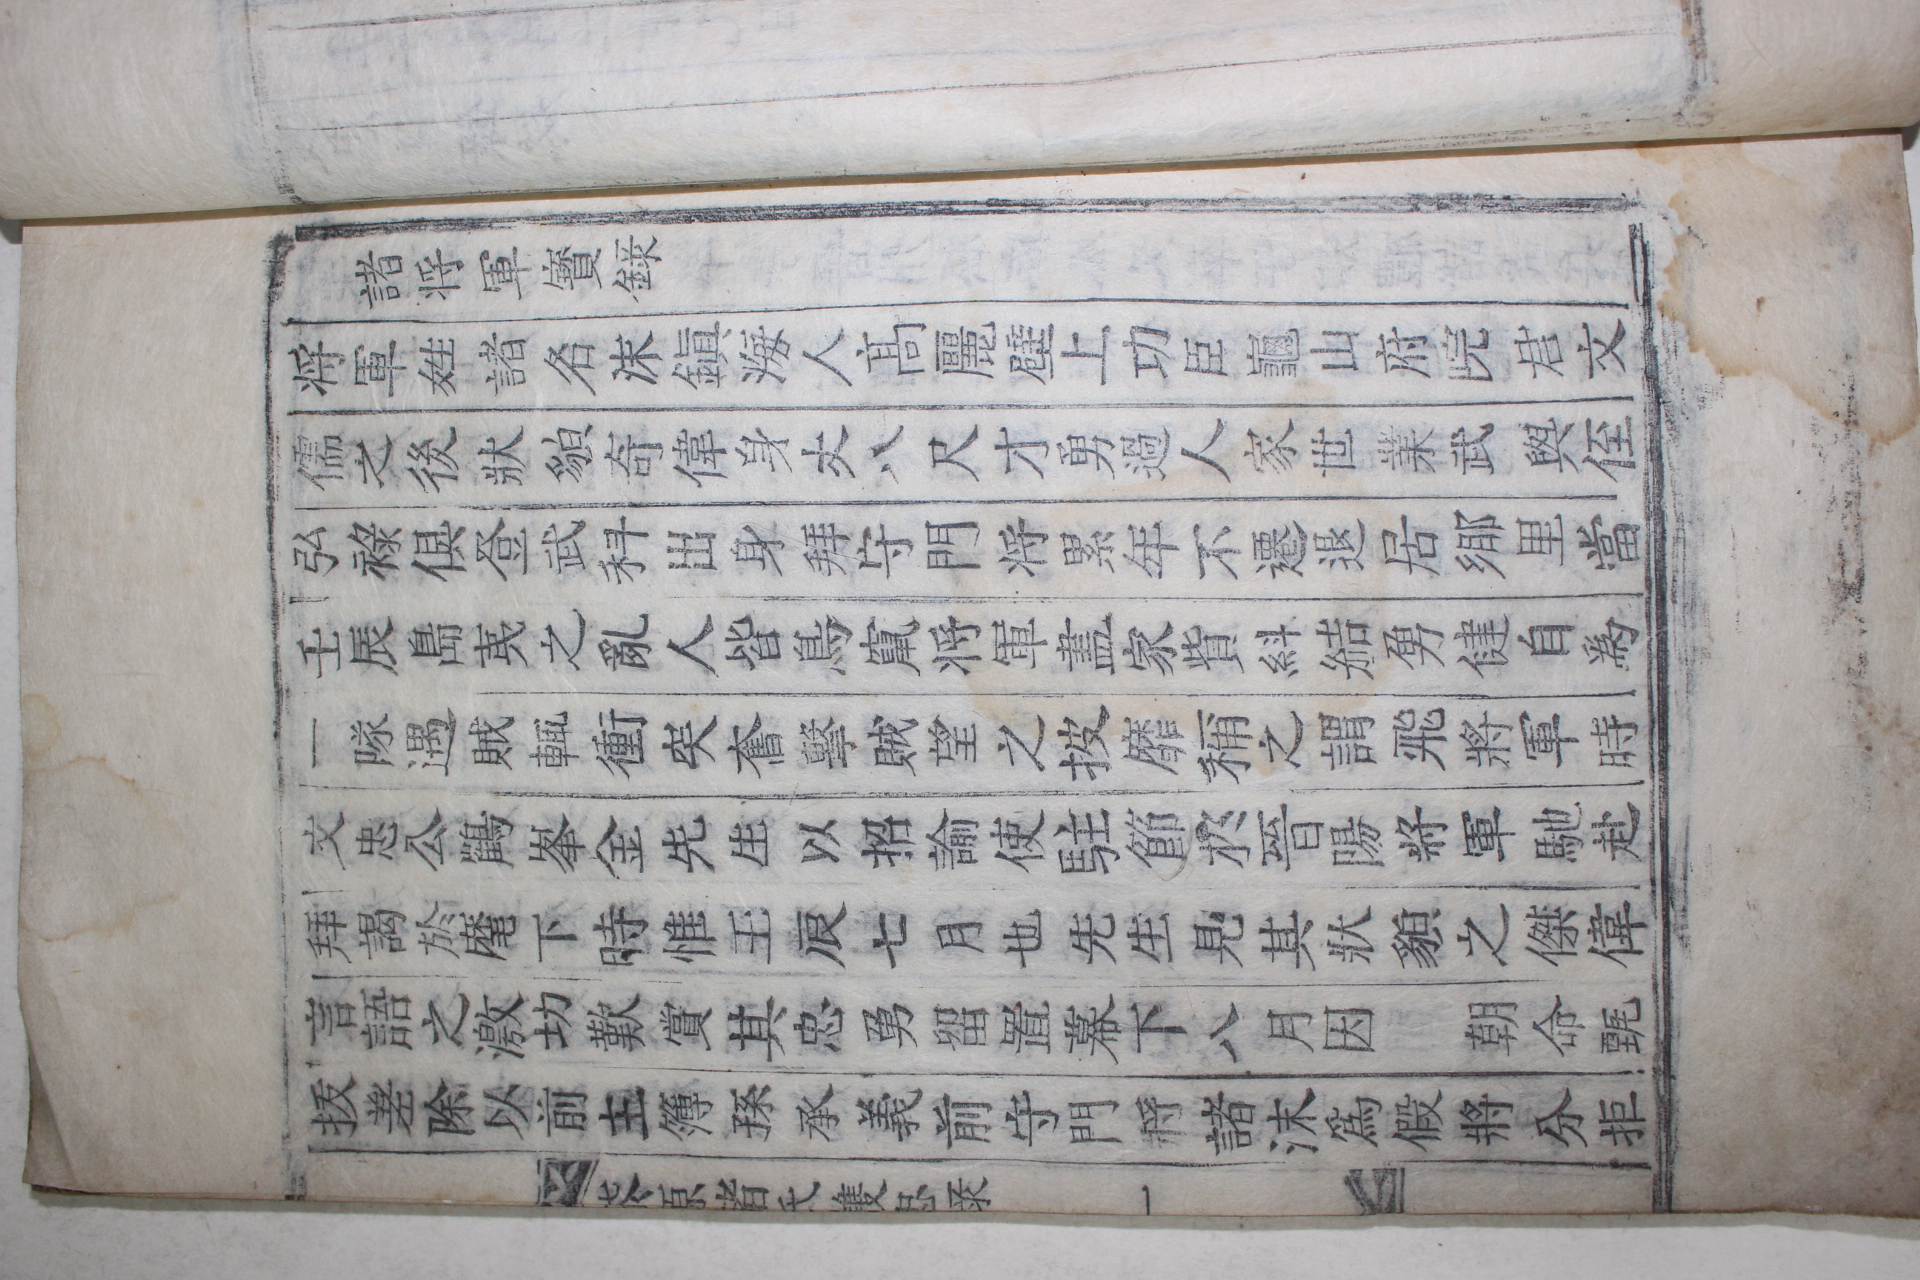 諸將軍實錄
將軍姓諸名沫鎭海人髙麗壁上功臣龜山府院君文
儒之後狀貌奇偉身丈八尺才勇過人家世業武與侄
弘祿俱登武科出身拜守門將累年不遷退居鄉里當
壬辰島夷之亂人皆鳥竄將軍盡家貲糾結勇健自為
一隊遇賊輒衝突奮擊賊望之披靡稱之謂飛將軍時
文忠公鶴峯金先生以招諭使駐節於晉陽將軍馳赴
拜謁於麾下時惟壬辰七月也先生見其狀貌之傑偉
言語之激切歎賞其忠勇留置幕下八月因　朝命甄
拔差除以前主簿孫承義前守門將諸沫爲假將分拒
原諸氏雙忠录 一